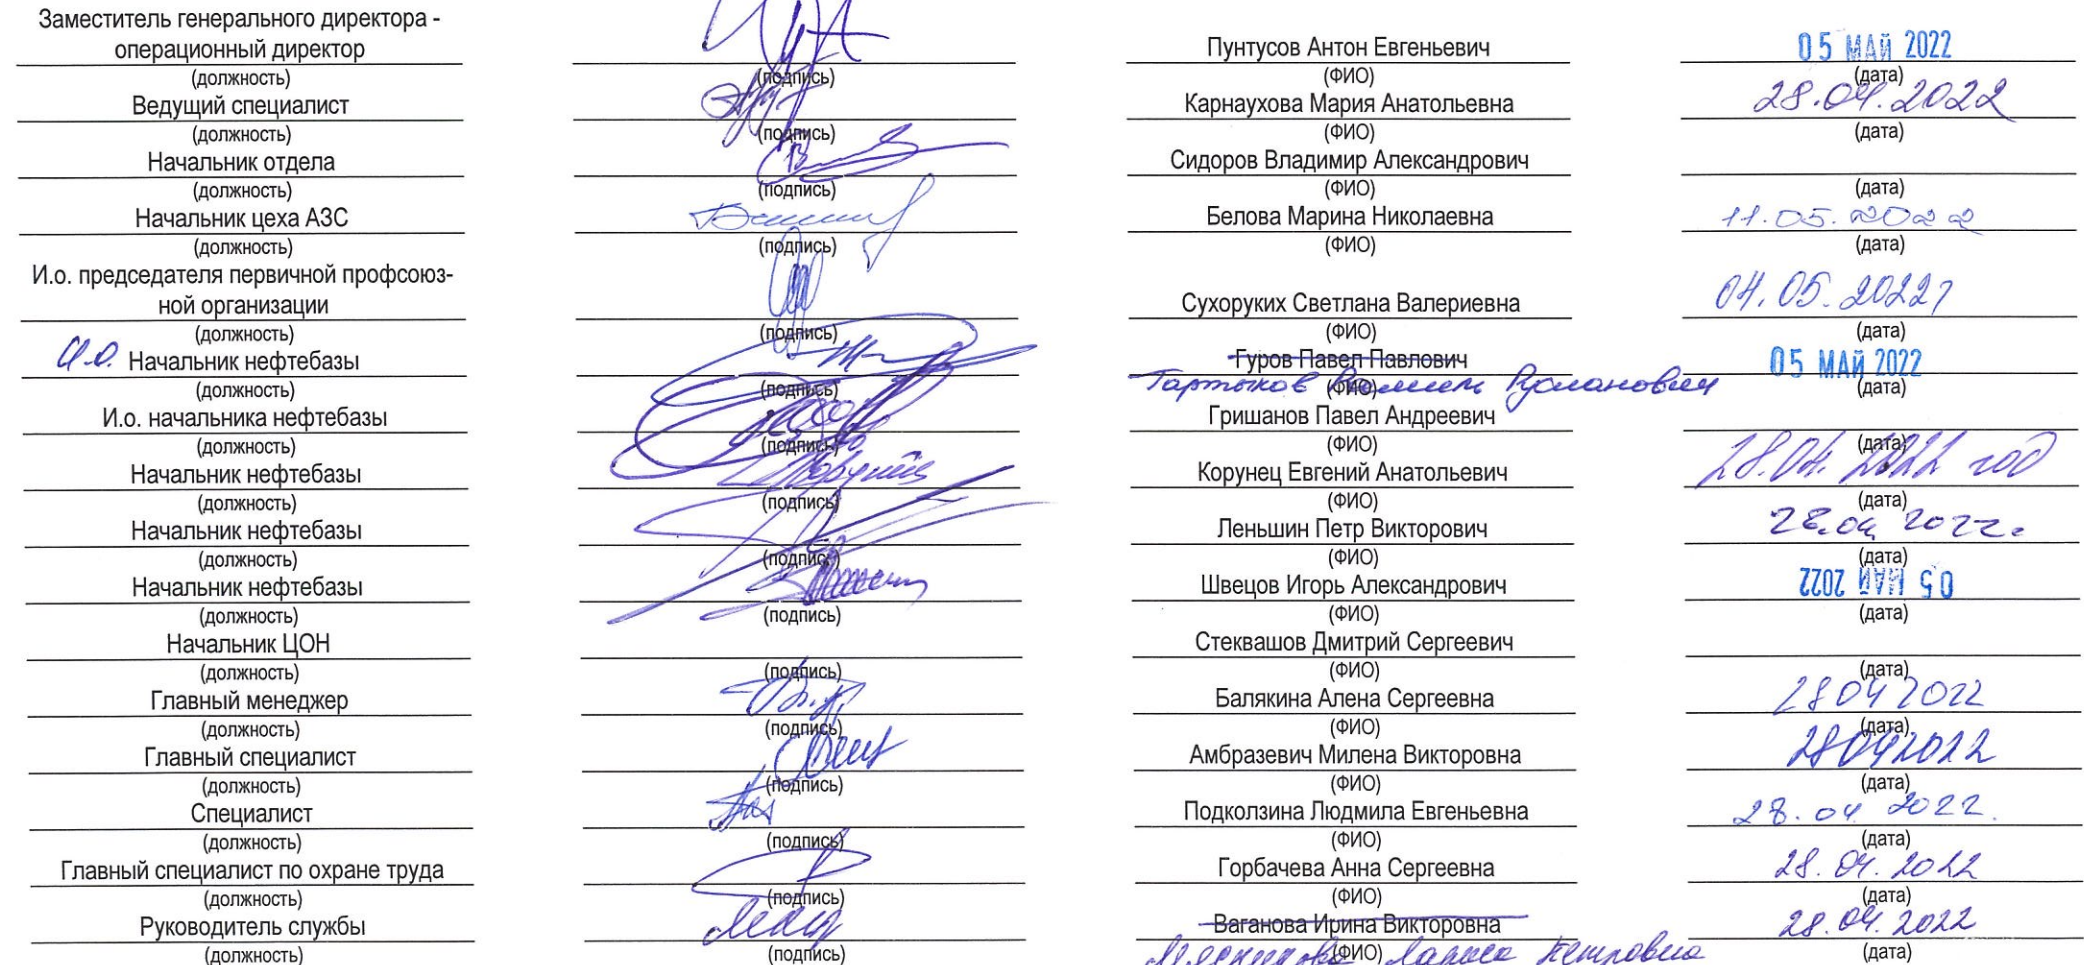 Заместитель генерального директора -
операционный директор Пунтусов Антон Евгеньевич 05 МАЙ 2022
(должность) (подпись) (ФИО) (дата)
Ведущий специалист Карнаухова Мария Анатольевна 28.04.2022
(должность) (подпись) (ФИО) (дата)
Начальник отдела Сидоров Владимир Александрович
(должность) (подпись) (ФИО) (дата)
Начальник цеха АЗС Белова Марина Николаевна 11.05.2022
(должность) (подпись) (ФИО) (дата)
И.о. председателя первичной профсоюз-
ной организации Сухоруких Светлана Валериевна 04.05.2022г
(должность) (подпись) (ФИО) (дата)
И.о. Начальник нефтебазы Гуров Павел Павлович 05 МАЙ 2022
(должность) (подпись) (ФИО) (дата)
Русланович
И.о. начальника нефтебазы Гришанов Павел Андреевич
(должность) (подпись) (ФИО) (дата)
Начальник нефтебазы Корунец Евгений Анатольевич 28.04.2022 год
(должность) (подпись) (ФИО) (дата)
Начальник нефтебазы Леньшин Петр Викторович 28.04 2022г.
(должность) (подпись) (ФИО) (дата)
Начальник нефтебазы Швецов Игорь Александрович 05 МАЙ 2022
(должность) (подпись) (ФИО) (дата)
Начальник ЦОН Стеквашов Дмитрий Сергеевич
(должность) (подпись) (ФИО) (дата)
Главный менеджер Балякина Алена Сергеевна 28 04 2022
(должность) (подпись) (ФИО) (дата)
Главный специалист Амбразевич Милена Викторовна 28042022
(должность) (подпись) (ФИО) (дата)
Специалист Подколзина Людмила Евгеньевна 28.04 2022.
(должность) (подпись) (ФИО) (дата)
Главный специалист по охране труда Горбачева Анна Сергеевна 28.04.2022
(должность) (подпись) (ФИО) (дата)
Руководитель службы Ваганова Ирина Викторовна 28.04.2022
(должность) (подпись) (ФИО) (дата)
Лариса Петровна